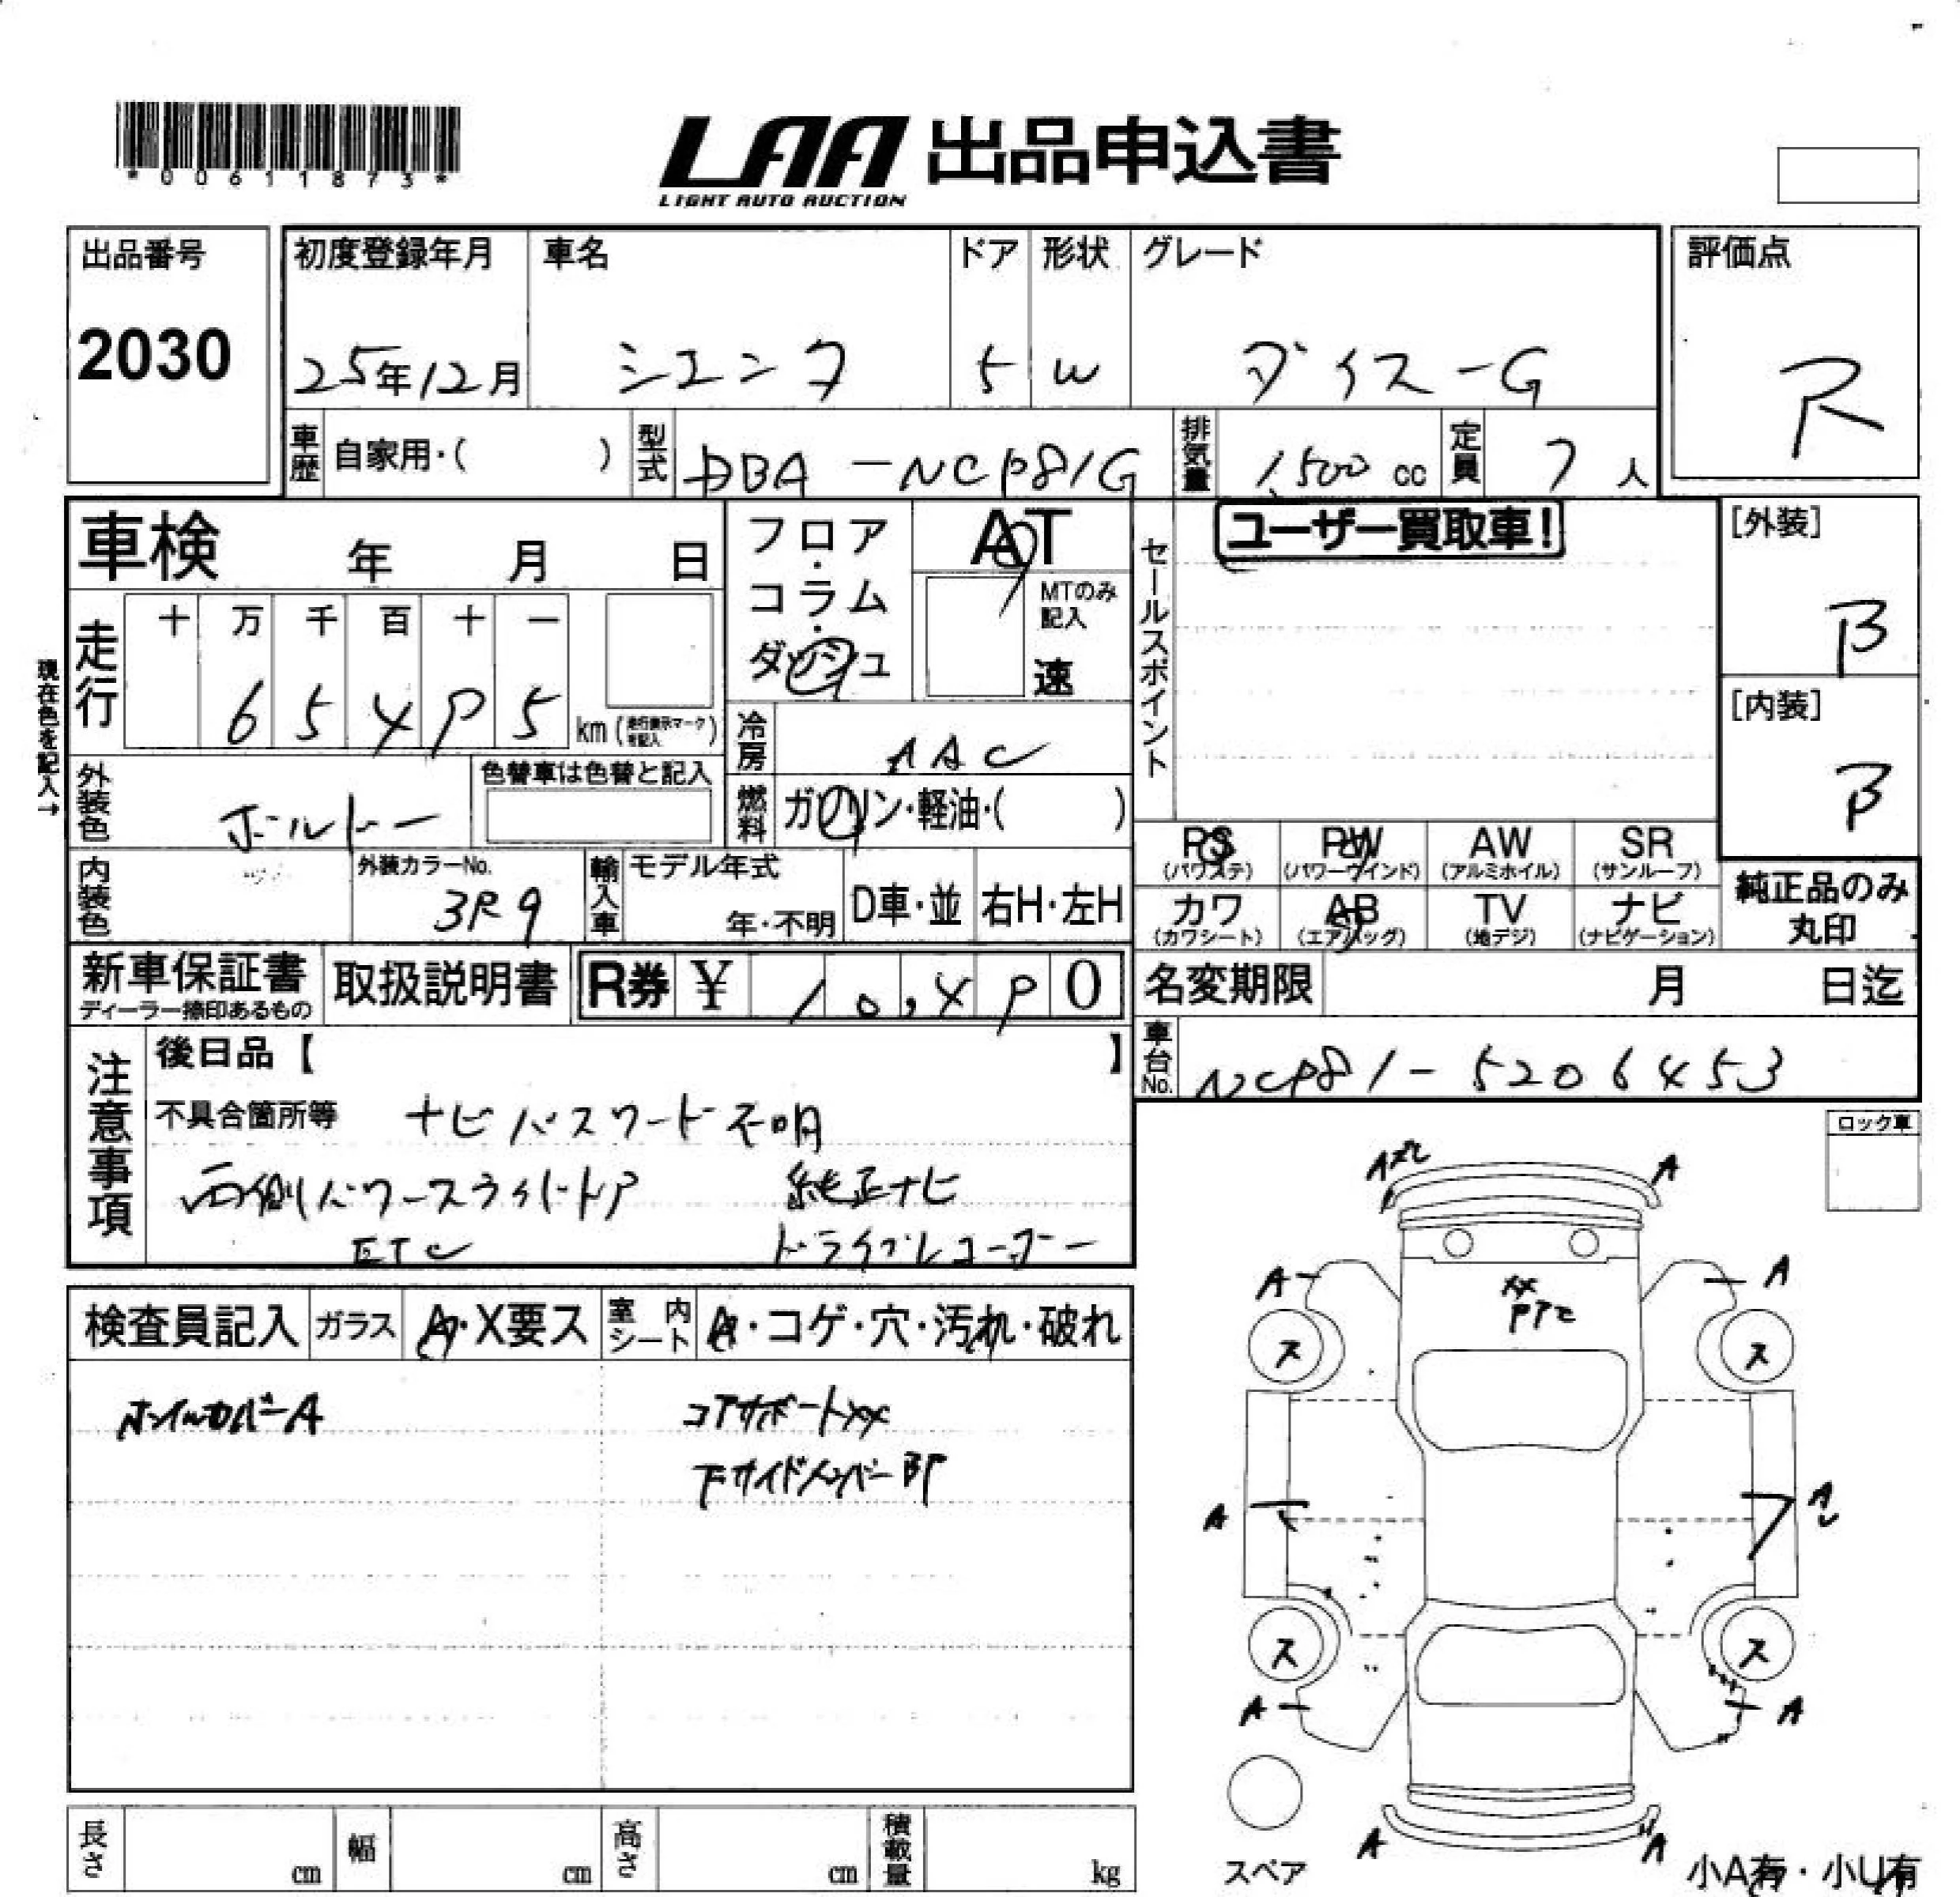 *00611873*
LAA 出品申込書
LIGHT AUTO AUCTION
出品番号 初度登録年月 車名 ドア 形状 グレード 評価点
2030 25年12月 シエンタ 5 W ダイス-G R
車歴 自家用・( ) 型式 DBA-NCP81G 排気量 1,500 cc 定員 7 人
車検 年 月 日
フロア・コラム・ダッシュ
AT
MTのみ記入
速
セールスポイント
ユーザー買取車!
[外装]
B
[内装]
B
現在色を記入→
走行 十 万 千 百 十 一
6 5 4 9 5 km (走行表示マークを記入)
冷房 AAC
外装色 ボルドー
色替車は色替と記入
燃料 ガソリン・軽油・( )
PS PW AW SR
(パワステ) (パワーウインド) (アルミホイル) (サンルーフ)
カワ AB TV ナビ
(カワシート) (エアバッグ) (地デジ) (ナビゲーション)
純正品のみ丸印
内装色
外装カラーNo.
3R9
輸入車 モデル年式
年・不明 D車・並 右H・左H
新車保証書
ディーラー捺印あるもの
取扱説明書
R券 ¥ 10,490
名変期限 月 日迄
車台No. NCP81-5206453
注意事項
後日品【 】
不具合箇所等 ナビパスワード不明
両側パワースライドドア 純正ナビ
ETC ドライブレコーダー
ロック車
検査員記入 ガラス A・X要ス 室内シート A・コゲ・穴・汚れ・破れ
ホイルカバーA コアサポートXX
下サイドメンバーBP
A A
A A
XX
ス ス
A A
ス ス
A A
A A
スペア
小A有・小U有
長さ cm 幅 cm 高さ cm 積載量 kg